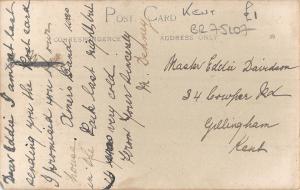 POST CARD
CORRESPONDENCE
KENT
£1
BR75107
Dear Eddie I am at last
sending you the Post card
I promised you of our
house.
in the Park last night but
was very cold
From Yours Sincerely
M.
Master Eddie Davidson
34 Cowper Rd
Gillingham
Kent